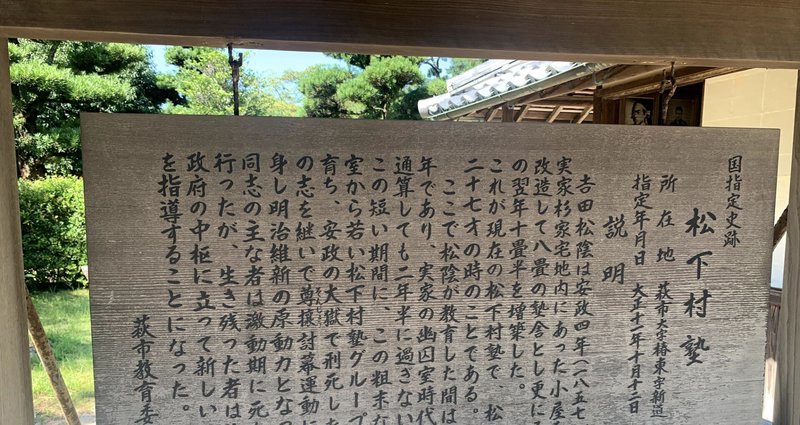 国指定史跡
松下村塾
所在地 萩市大字椿東字新道
指定年月日 大正十一年十月十二日
説明
吉田松陰は安政四年(一八五七
実家杉家宅地内にあった小屋
改造して八畳の塾舎とし更に
の翌年十畳半を増築した。
これが現在の松下村塾で 松
二十七才の時のことである。
ここで松陰が教育した間は
年であり、実家の幽囚室時代
通算しても二年半に過ぎない
この短い期間に、この粗末な
室から若い松下村塾グループ
育ち、安政の大獄で刑死した
の志を継いで尊攘討幕運動に
身し明治維新の原動力となっ
同志の主な者は激動期に死
行ったが、生き残った者は
政府の中枢に立って新しい
を指導することになった。
萩市教育委